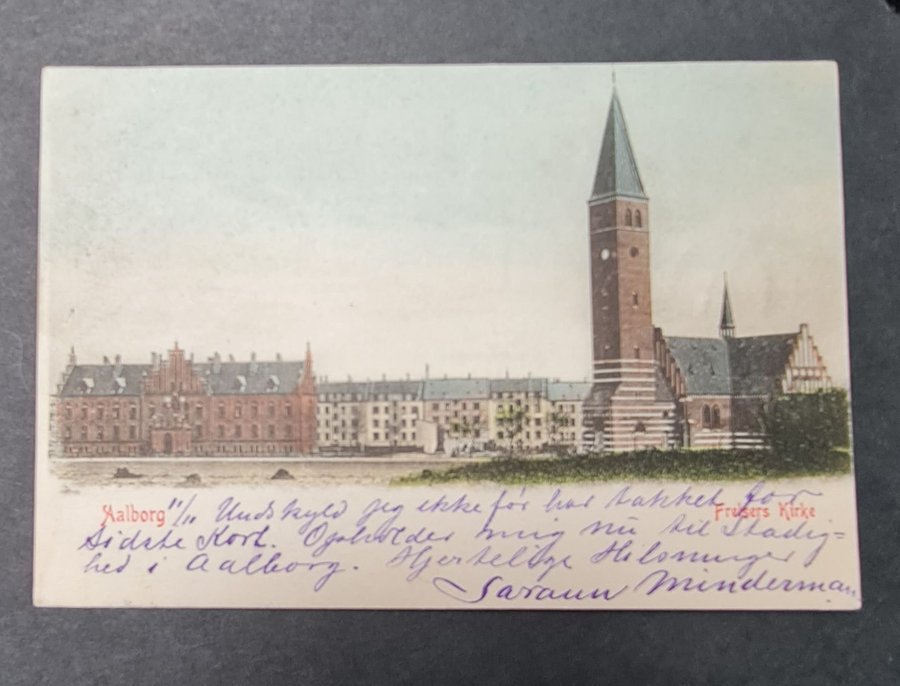 Aalborg 11/11 Undskyld jeg ikke før har takket for
Frelsers Kirke
sidste Kort. Opholder mig nu til Stadig=
hed i Aalborg. Hjertelige Hilsninger
Minderman